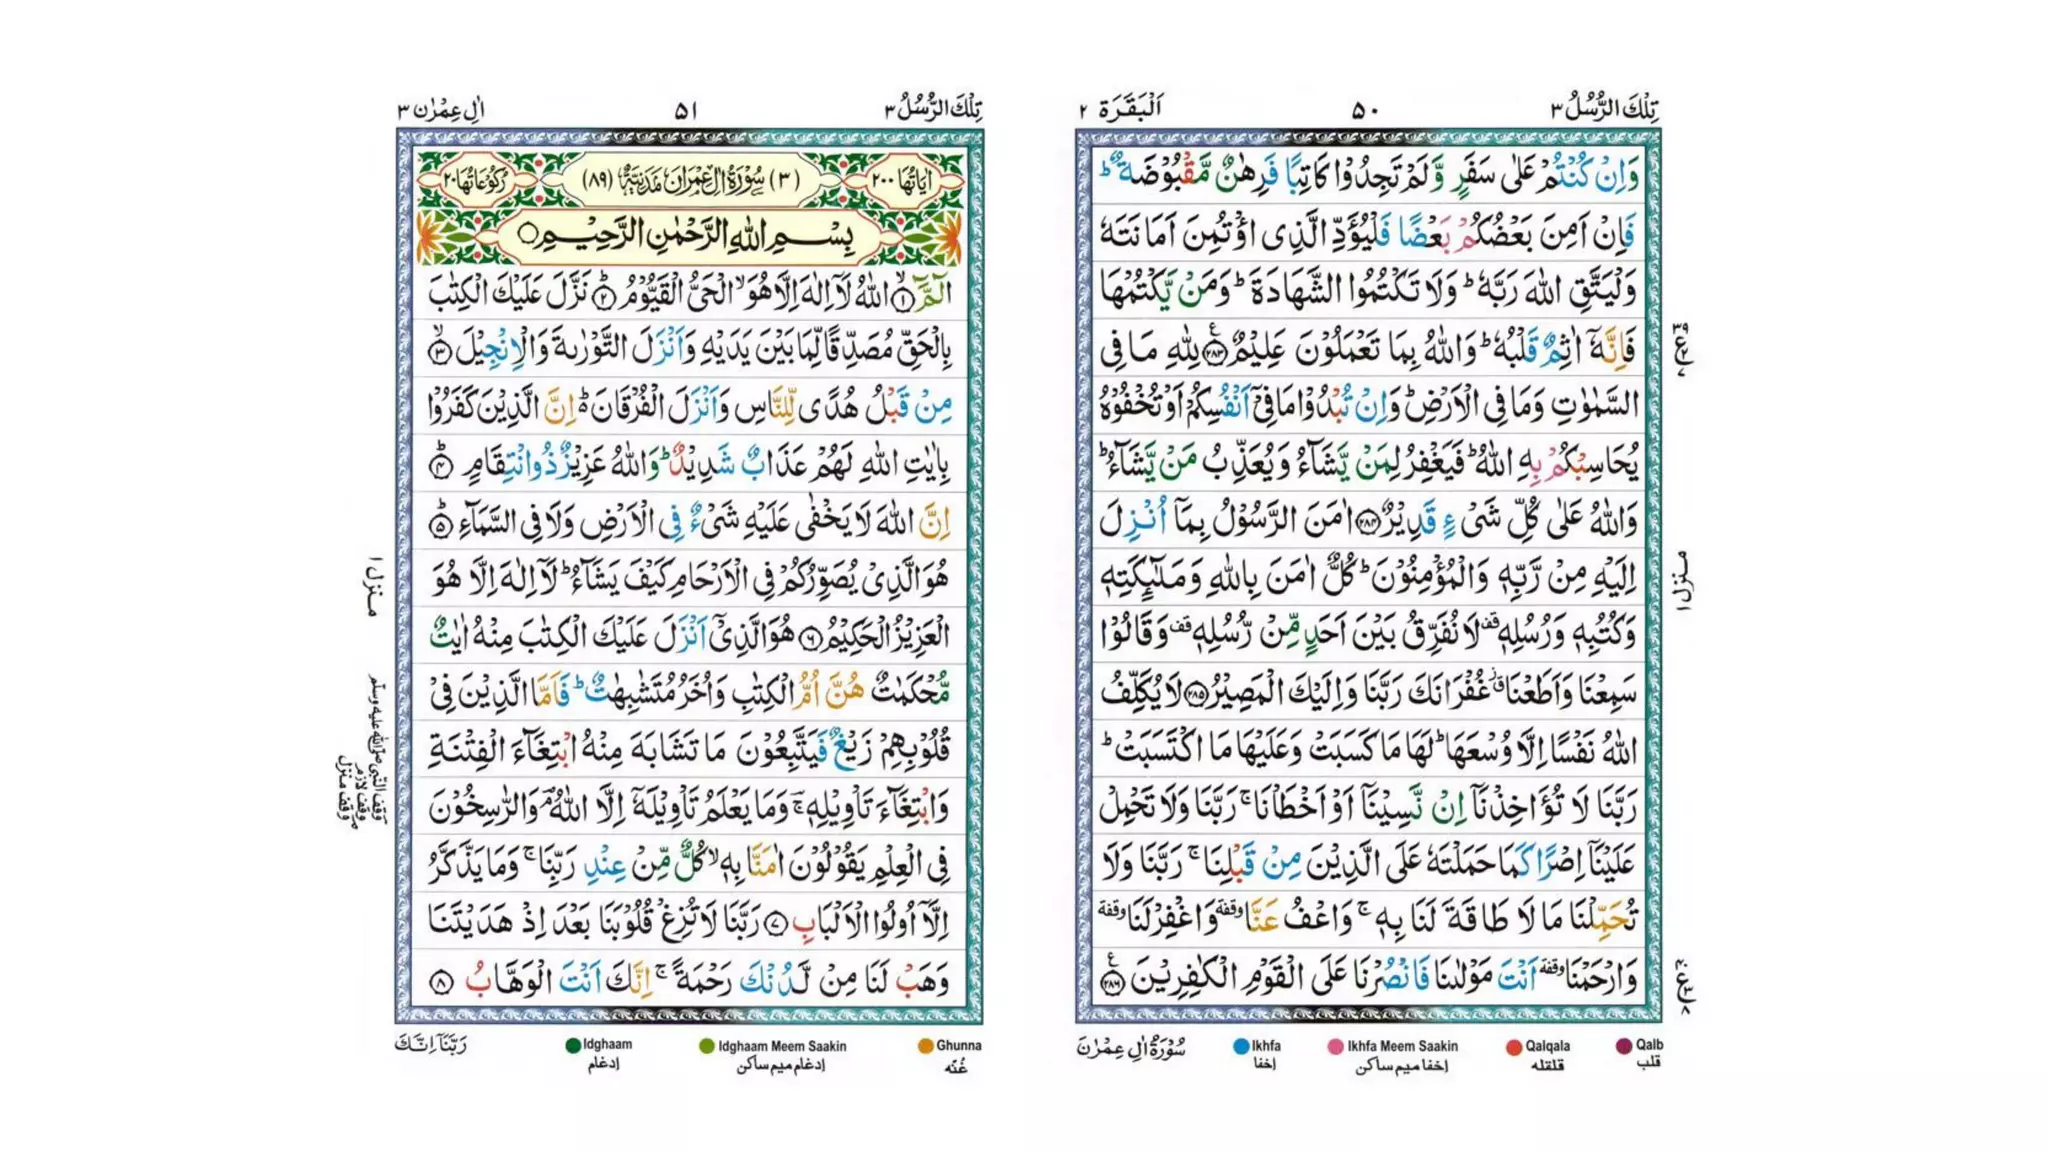 تِلْكَ الرُّسُلُ ٣
٥٠
اَلْبَقَرَة ٢
وَاِنْ كُنْتُمْ عَلٰى سَفَرٍ وَّلَمْ تَجِدُوْا كَاتِبًا فَرِهٰنٌ مَّقْبُوْضَةٌ ؕ
فَاِنْ اَمِنَ بَعْضُكُمْ بَعْضًا فَلْيُؤَدِّ الَّذِى اؤْتُمِنَ اَمَانَتَهٗ
وَلْيَتَّقِ اللّٰهَ رَبَّهٗ ؕ وَلَا تَكْتُمُوا الشَّهَادَةَ ؕ وَمَنْ يَّكْتُمْهَا
فَاِنَّهٗۤ اٰثِمٌ قَلْبُهٗ ؕ وَاللّٰهُ بِمَا تَعْمَلُوْنَ عَلِيْمٌ ۟﴿٢٨٣﴾ لِلّٰهِ مَا فِى
السَّمٰوٰتِ وَمَا فِى الْاَرْضِ ؕ وَاِنْ تُبْدُوْا مَا فِىْۤ اَنْفُسِكُمْ اَوْ تُخْفُوْهُ
يُحَاسِبْكُمْ بِهِ اللّٰهُ ؕ فَيَغْفِرُ لِمَنْ يَّشَآءُ وَيُعَذِّبُ مَنْ يَّشَآءُ ؕ
وَاللّٰهُ عَلٰى كُلِّ شَىْءٍ قَدِيْرٌ ﴿٢٨٤﴾ اٰمَنَ الرَّسُوْلُ بِمَاۤ اُنْزِلَ
اِلَيْهِ مِنْ رَّبِّهٖ وَالْمُؤْمِنُوْنَ ؕ كُلٌّ اٰمَنَ بِاللّٰهِ وَمَلٰٓئِكَتِهٖ
وَكُتُبِهٖ وَرُسُلِهٖ قف لَا نُفَرِّقُ بَيْنَ اَحَدٍ مِّنْ رُّسُلِهٖ قف وَقَالُوْا
سَمِعْنَا وَاَطَعْنَا ق ز غُفْرَانَكَ رَبَّنَا وَاِلَيْكَ الْمَصِيْرُ ﴿٢٨٥﴾ لَا يُكَلِّفُ
اللّٰهُ نَفْسًا اِلَّا وُسْعَهَا ؕ لَهَا مَا كَسَبَتْ وَعَلَيْهَا مَا اكْتَسَبَتْ ؕ
رَبَّنَا لَا تُؤَاخِذْنَاۤ اِنْ نَّسِيْنَاۤ اَوْ اَخْطَاْنَا ۚ رَبَّنَا وَلَا تَحْمِلْ
عَلَيْنَاۤ اِصْرًا كَمَا حَمَلْتَهٗ عَلَى الَّذِيْنَ مِنْ قَبْلِنَا ۚ رَبَّنَا وَلَا
تُحَمِّلْنَا مَا لَا طَاقَةَ لَنَا بِهٖ ۚ وَاعْفُ عَنَّا وقفة وَاغْفِرْ لَنَا وقفة
وَارْحَمْنَا وقفة اَنْتَ مَوْلٰىنَا فَانْصُرْنَا عَلَى الْقَوْمِ الْكٰفِرِيْنَ ﴿٢٨٦﴾
منزل ١
سُوْرَةُ اٰلِ عِمْرٰنَ
Ikhfa
إخفا
Ikhfa Meem Saakin
إخفا ميم ساكن
Qalqala
قلقله
Qalb
قلب
تِلْكَ الرُّسُلُ ٣
٥١
اٰلِ عِمْرٰن ٣
اٰيَاتُهَا ٢٠٠
(٣) سُوْرَةُ اٰلِ عِمْرَانَ مَدَنِيَّةٌ (٨٩)
رُكُوْعَاتُهَا ٢٠
بِسْمِ اللّٰهِ الرَّحْمٰنِ الرَّحِيْمِ
الٓمّٓ ۙ﴿١﴾ اللّٰهُ لَاۤ اِلٰهَ اِلَّا هُوَ ۙ الْحَىُّ الْقَيُّوْمُ ؕ﴿٢﴾ نَزَّلَ عَلَيْكَ الْكِتٰبَ
بِالْحَقِّ مُصَدِّقًا لِّمَا بَيْنَ يَدَيْهِ وَاَنْزَلَ التَّوْرٰىةَ وَالْاِنْجِيْلَ ۙ﴿٣﴾
مِنْ قَبْلُ هُدًى لِّلنَّاسِ وَاَنْزَلَ الْفُرْقَانَ ؕ اِنَّ الَّذِيْنَ كَفَرُوْا
بِاٰيٰتِ اللّٰهِ لَهُمْ عَذَابٌ شَدِيْدٌ ؕ وَاللّٰهُ عَزِيْزٌ ذُو انْتِقَامٍ ؕ﴿٤﴾
اِنَّ اللّٰهَ لَا يَخْفٰى عَلَيْهِ شَىْءٌ فِى الْاَرْضِ وَلَا فِى السَّمَآءِ ؕ﴿٥﴾
هُوَ الَّذِىْ يُصَوِّرُكُمْ فِى الْاَرْحَامِ كَيْفَ يَشَآءُ ؕ لَاۤ اِلٰهَ اِلَّا هُوَ
الْعَزِيْزُ الْحَكِيْمُ ﴿٦﴾ هُوَ الَّذِىْۤ اَنْزَلَ عَلَيْكَ الْكِتٰبَ مِنْهُ اٰيٰتٌ
مُّحْكَمٰتٌ هُنَّ اُمُّ الْكِتٰبِ وَاُخَرُ مُتَشٰبِهٰتٌ ؕ فَاَمَّا الَّذِيْنَ فِىْ
قُلُوْبِهِمْ زَيْغٌ فَيَتَّبِعُوْنَ مَا تَشَابَهَ مِنْهُ ابْتِغَآءَ الْفِتْنَةِ
وَابْتِغَآءَ تَاْوِيْلِهٖ ۚ وَمَا يَعْلَمُ تَاْوِيْلَهٗۤ اِلَّا اللّٰهُ ۘ وَالرّٰسِخُوْنَ
فِى الْعِلْمِ يَقُوْلُوْنَ اٰمَنَّا بِهٖ ۙ كُلٌّ مِّنْ عِنْدِ رَبِّنَا ۚ وَمَا يَذَّكَّرُ
اِلَّاۤ اُولُوا الْاَلْبَابِ ﴿٧﴾ رَبَّنَا لَا تُزِغْ قُلُوْبَنَا بَعْدَ اِذْ هَدَيْتَنَا
وَهَبْ لَنَا مِنْ لَّدُنْكَ رَحْمَةً ۚ اِنَّكَ اَنْتَ الْوَهَّابُ ﴿٨﴾
منزل ١
وقف النبي صلى الله عليه وسلم
وقف لازم
وقف منزل
رَبَّنَاۤ اِنَّكَ
Idghaam
إدغام
Idghaam Meem Saakin
إدغام ميم ساكن
Ghunna
غُنّه